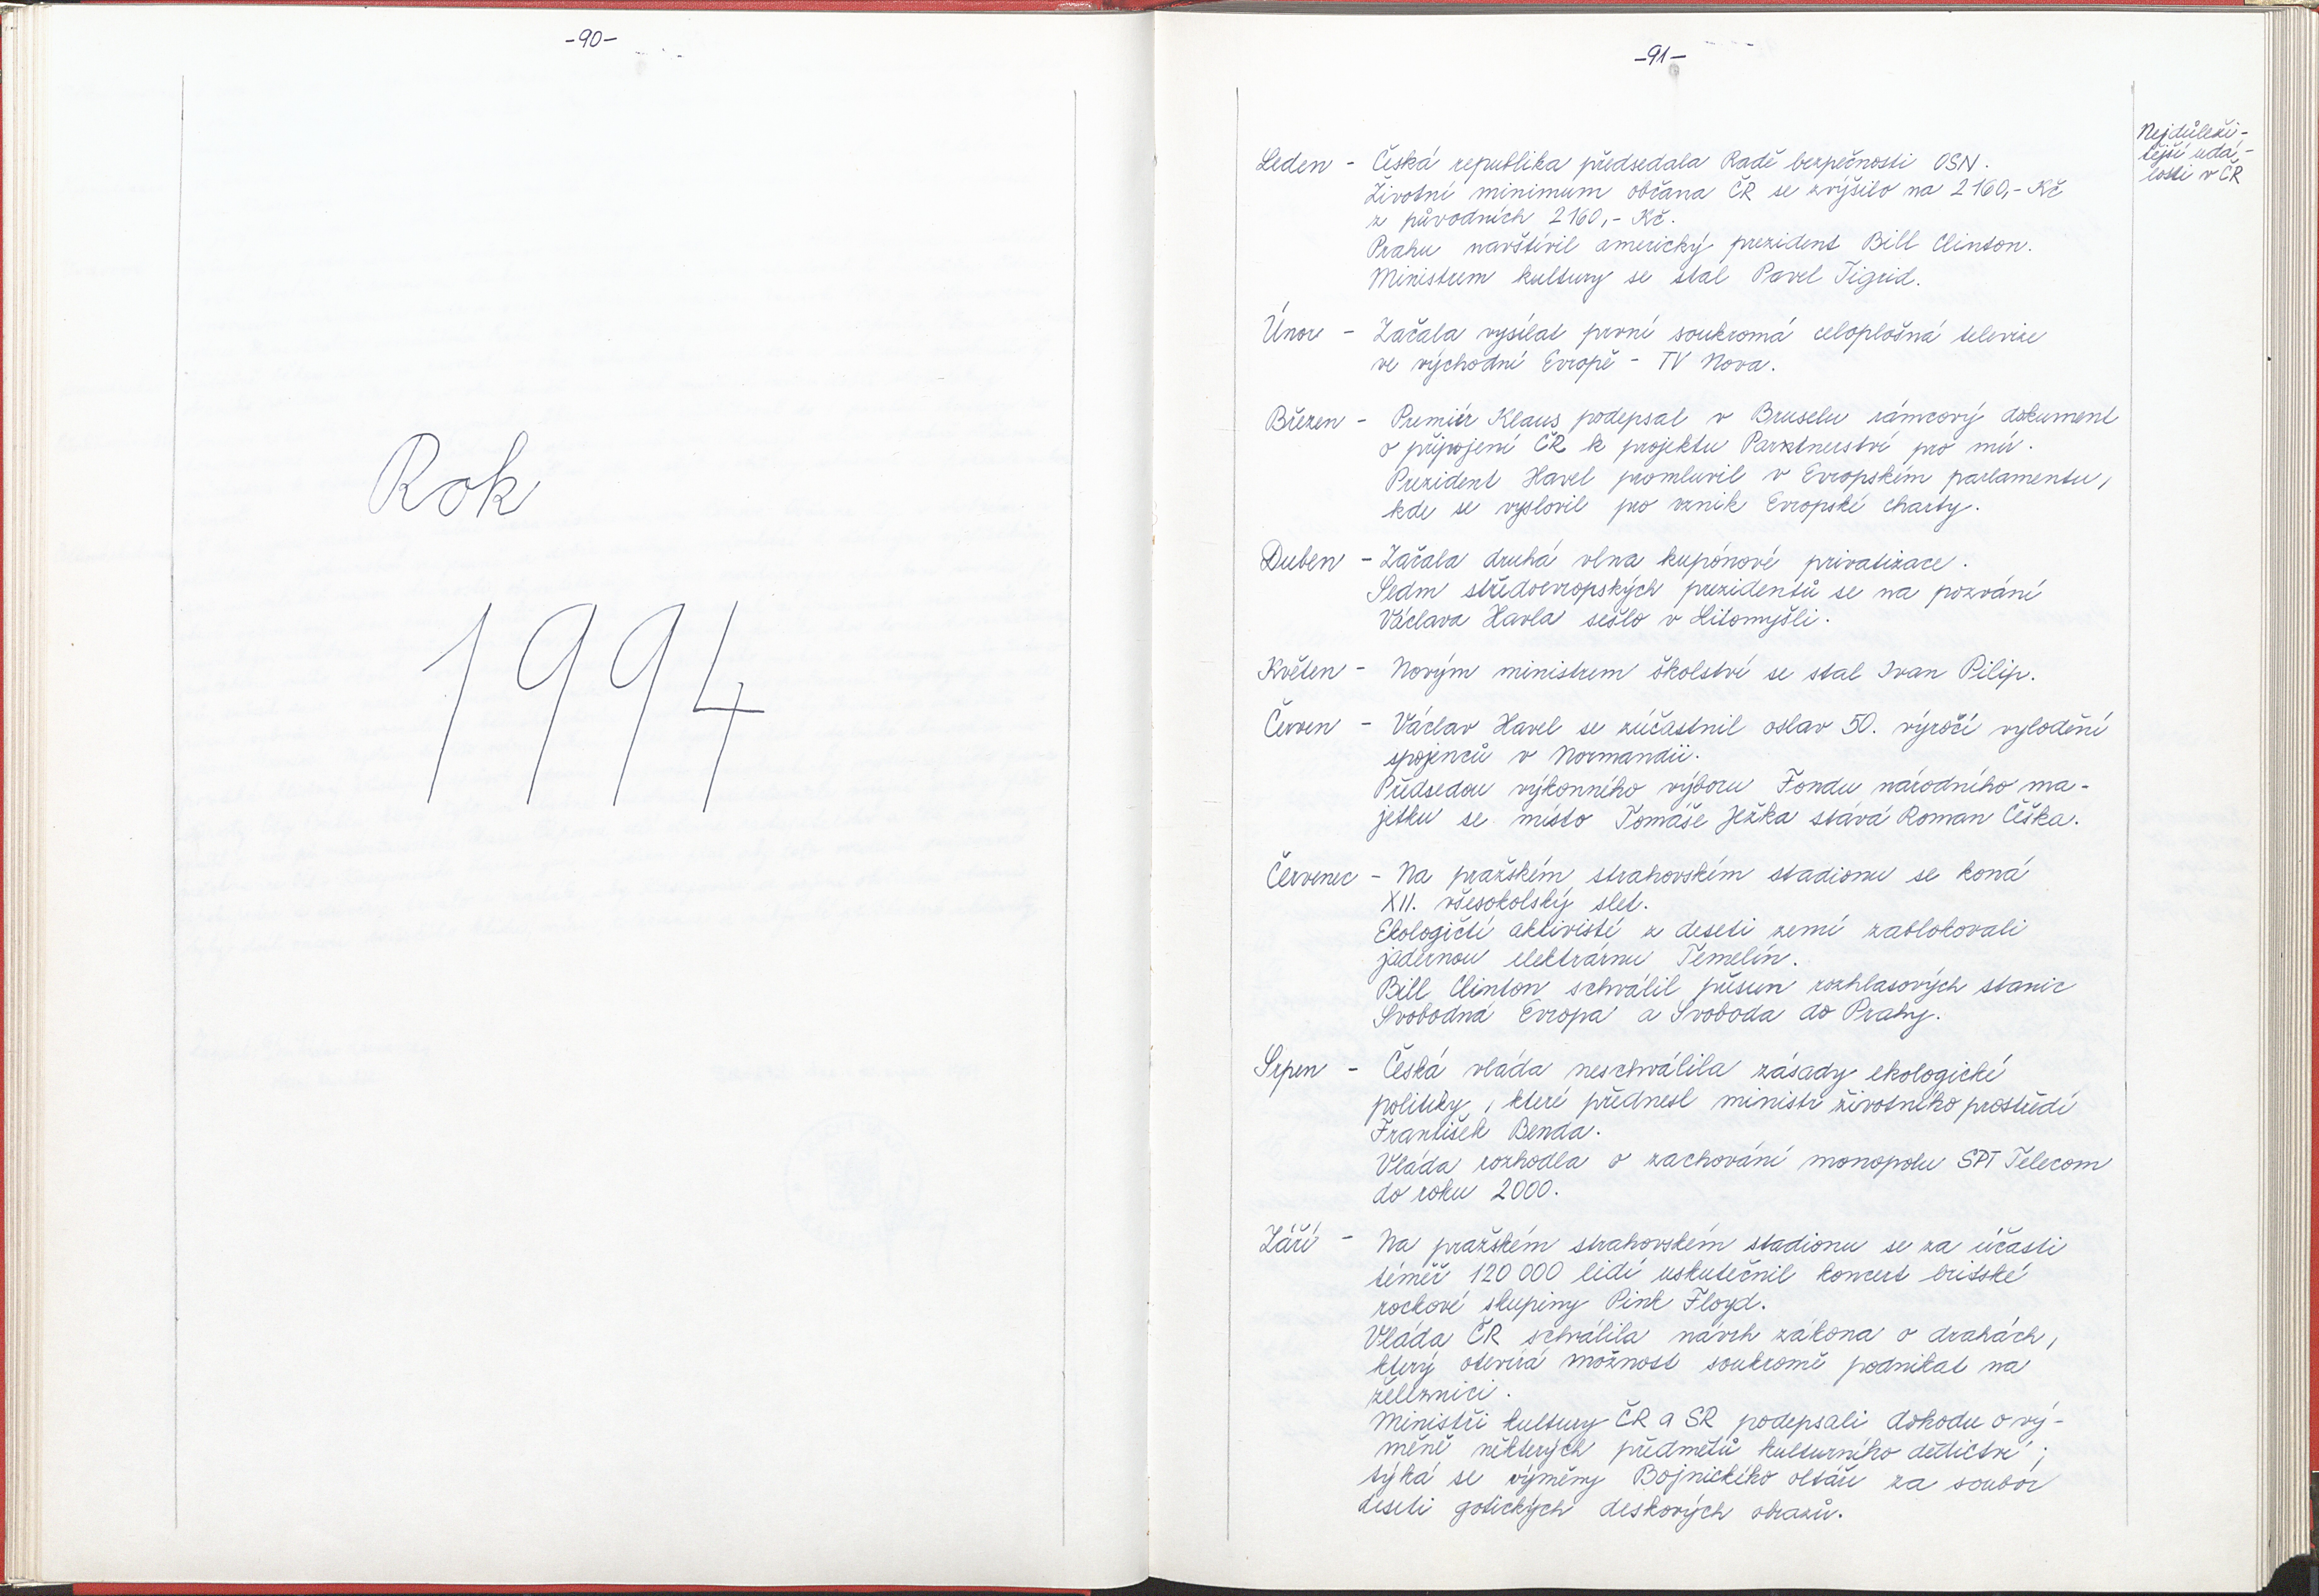 -90-
Rok
1994
-91-
Nejdůleži-
tější udá-
losti v ČR
Leden - Česká republika předsedala Radě bezpečnosti OSN.
Životní minimum občana ČR se zvýšilo na 2 160,- Kč
z původních 2160,- Kč.
Prahu navštívil americký prezident Bill Clinton.
Ministrem kultury se stal Pavel Tigrid.
Únor - Začala vysílat první soukromá celoplošná televize
ve východní Evropě - TV Nova.
Březen - Premiér Klaus podepsal v Bruselu rámcový dokument
o připojení ČR k projektu Partnerství pro mír.
Prezident Havel promluvil v Evropském parlamentu,
kde se vyslovil pro vznik Evropské charty.
Duben - Začala druhá vlna kupónové privatizace.
Sedm středoevropských prezidentů se na pozvání
Václava Havla sešlo v Litomyšli.
Květen - Novým ministrem školství se stal Ivan Pilip.
Červen - Václav Havel se zúčastnil oslav 50. výročí vylodění
spojenců v Normandii.
Předsedou výkonného výboru Fondu národního ma-
jetku se místo Tomáše Ježka stává Roman Češka.
Červenec - Na pražském strahovském stadionu se koná
XII. všesokolský slet.
Ekologičtí aktivisté z deseti zemí zablokovali
jadernou elektrárnu Temelín.
Bill Clinton schválil přesun rozhlasových stanic
Svobodná Evropa a Svoboda do Prahy.
Srpen - Česká vláda neschválila zásady ekologické
politiky, které přednesl ministr životního prostředí
František Benda.
Vláda rozhodla o zachování monopolu SPT Telecom
do roku 2000.
Září - Na pražském strahovském stadionu se za účasti
téměř 120 000 lidí uskutečnil koncert britské
rockové skupiny Pink Floyd.
Vláda ČR schválila návrh zákona o drahách,
který otevírá možnost soukromě podnikat na
železnici.
Ministři kultury ČR a SR podepsali dohodu o vý-
měně některých předmětů kulturního dědictví;
týká se výměny Bojnického oltáře za soubor
deseti gotických deskových obrazů.